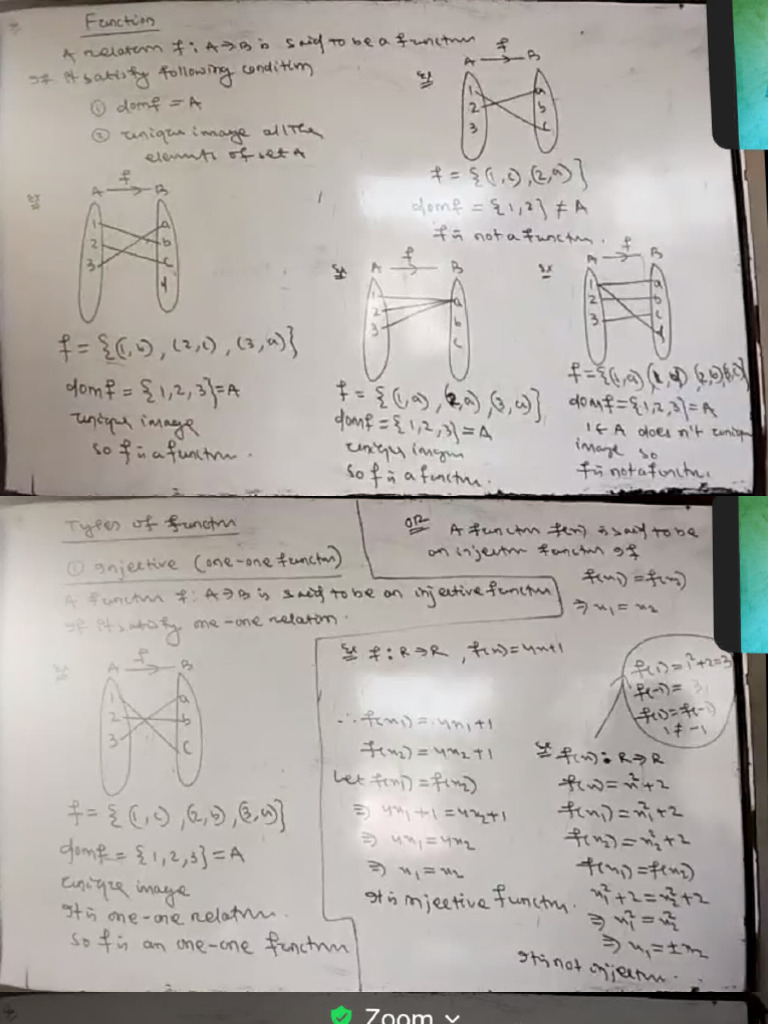 Function
A relation f: A→B is said to be a function
if it satisfy following condition
① domf = A
② unique image all the
elements of set A
Ex
A f B
1 2 3
a b c
f = {(1,c),(2,a)}
domf = {1,2} ≠ A
f is not a function.
Ex
A f B
1 2 3
a b c d
f = {(1,b), (2,c), (3,a)}
domf = {1,2,3}=A
unique image
so f is a function.
Ex
A f B
1 2 3
a b c
f = {(1,a), (2,a), (3,a)}
domf = {1,2,3}=A
unique image
so f is a function.
Ex
A f B
1 2 3
a b c d
f={(1,a) (1,d) (2,b)(3,c)}
domf={1,2,3}=A
1∈A does n't unique
image so
f is not a function.
Types of function
① Injective (one-one function)
A function f: A→B is said to be an injective function
if it satisfy one-one relation.
Ex
A f B
1 2 3
a b c
f = {(1,c), (2,b), (3,a)}
domf = {1,2,3}=A
unique image
It is one-one relation.
so f is an one-one function
OR A function f(x) is said to be
an injection function if
f(x₁)=f(x₂)
⇒ x₁ = x₂
Ex f: R→R, f(x)=4x+1
∴ f(x₁) = 4x₁+1
f(x₂) = 4x₂+1
Let f(x₁) = f(x₂)
⇒ 4x₁+1 = 4x₂+1
⇒ 4x₁ = 4x₂
⇒ x₁ = x₂
It is injective function.
f(1) = 1²+2=3
f(-1) = 3
f(1) = f(-1)
1 ≠ -1
Ex f(x): R→R
f(x) = x²+2
f(x₁) = x₁²+2
f(x₂) = x₂²+2
f(x₁) = f(x₂)
x₁²+2 = x₂²+2
⇒ x₁² = x₂²
⇒ x₁ = ±x₂
It is not injection.
Zoom